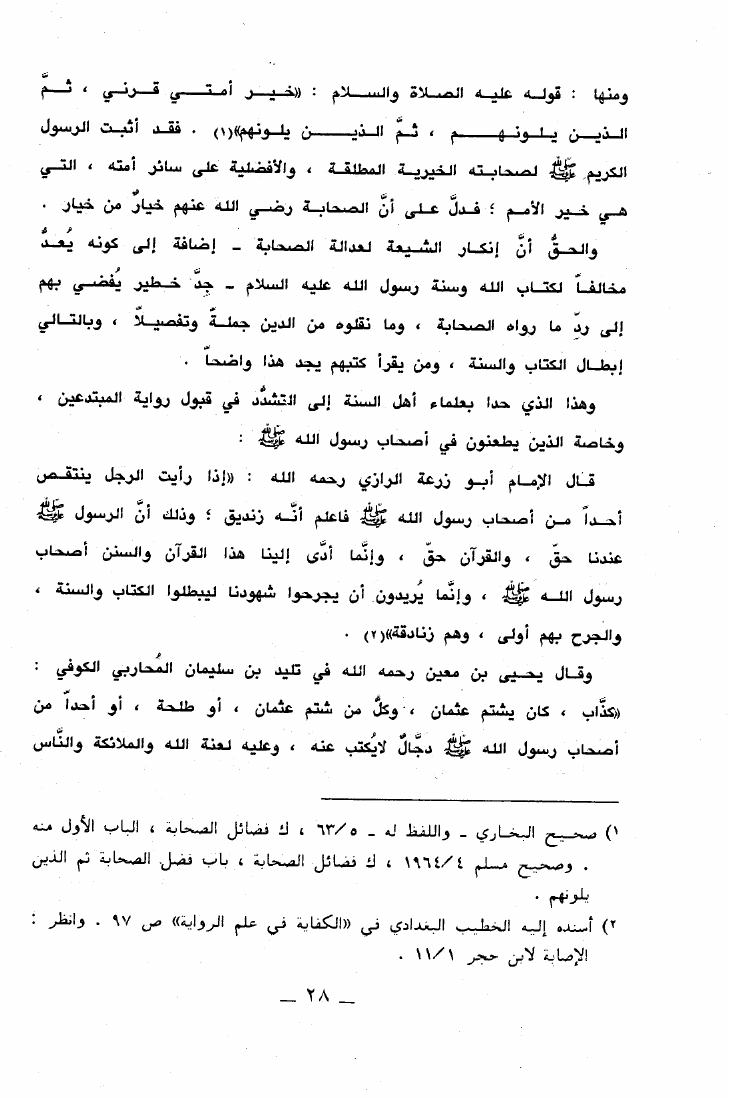 ومنها : قوله عليه الصلاة والسلام : «خير أمتي قرني ، ثمَّ
الذين يلونهم ، ثمَّ الذين يلونهم»(١) . فقد أثبت الرسول
الكريم ﷺ لصحابته الخيرية المطلقة ، والأفضلية على سائر أمته ، التي
هي خير الأمم ؛ فدلَّ على أنَّ الصحابة رضي الله عنهم خيارٌ من خيار .
والحقُّ أنَّ إنكار الشيعة لعدالة الصحابة ـ إضافة إلى كونه يُعدُّ
مخالفاً لكتاب الله وسنة رسول الله عليه السلام ـ جِدَّ خطير يُفضي بهم
إلى ردِّ ما رواه الصحابة ، وما نقلوه من الدين جملةً وتفصيلاً ، وبالتالي
إبطال الكتاب والسنة ، ومن يقرأ كتبهم يجد هذا واضحاً .
وهذا الذي حدا بعلماء أهل السنة إلى التشدُّد في قبول رواية المبتدعين ،
وخاصة الذين يطعنون في أصحاب رسول الله ﷺ :
قال الإمام أبو زرعة الرازي رحمه الله : «إذا رأيت الرجل ينتقص
أحداً من أصحاب رسول الله ﷺ فاعلم أنَّه زنديق ؛ وذلك أنَّ الرسول ﷺ
عندنا حقّ ، والقرآن حقّ ، وإنَّما أدَّى إلينا هذا القرآن والسنن أصحاب
رسول الله ﷺ ، وإنَّما يُريدون أن يجرحوا شهودنا ليبطلوا الكتاب والسنة ،
والجرح بهم أولى ، وهم زنادقة»(٢) .
وقال يحيى بن معين رحمه الله في تليد بن سليمان المُحاربي الكوفي :
«كذَّاب ، كان يشتم عثمان ، وكلُّ من شتم عثمان ، أو طلحة ، أو أحداً من
أصحاب رسول الله ﷺ دجَّالٌ لايُكتب عنه ، وعليه لعنة الله والملائكة والنَّاس
١) صحيح البخاري ـ واللفظ له ـ ٦٣/٥ ، ك فضائل الصحابة ، الباب الأول منه
. وصحيح مسلم ١٩٦٤/٤ ، ك فضائل الصحابة ، باب فضل الصحابة ثم الذين
يلونهم .
٢) أسنده إليه الخطيب البغدادي في «الكفاية في علم الرواية» ص ٩٧ . وانظر :
الإصابة لابن حجر ١١/١ .
ـ ٢٨ ـ